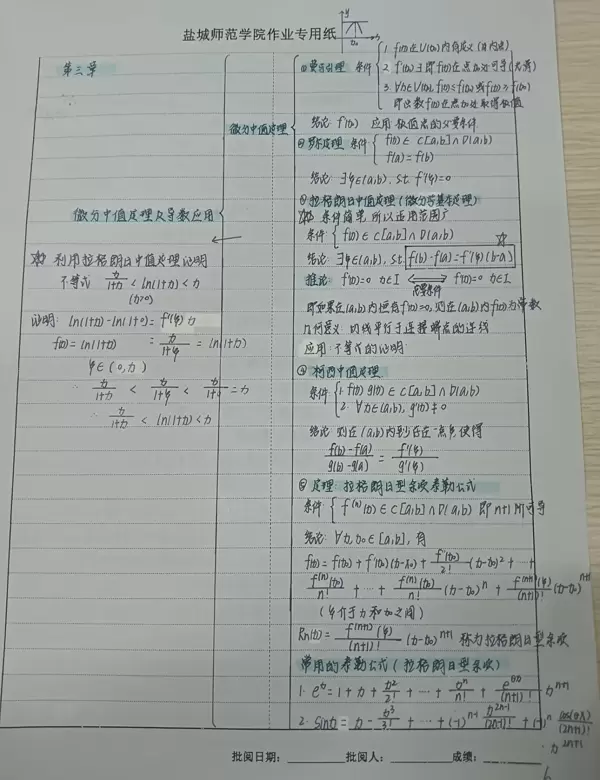 盐城师范学院作业专用纸
第三章
微分中值定理及导数应用
利用拉格朗日中值定理证明
不等式 x/(1+x) < ln(1+x) < x
(x>0)
证明: ln(1+x) - ln(1+0) = f'(ξ) x
f(x) = ln(1+x) = x/(1+ξ) = ln(1+x)
ξ∈(0,x)
∴ x/(1+x) < x/(1+ξ) < x/(1+0) = x
∴ x/(1+x) < ln(1+x) < x
微分中值定理
①费马引理 条件
1. f(x)在U(x₀)内有定义(且内点)
2. f'(x₀)∃ 即f(x)在点x₀处可导
3. ∀x∈U(x₀), f(x)≤f(x₀)或f(x)≥f(x₀)
即函数f(x)在点x₀处取得极值
结论: f'(x₀) 应用 极值点的必要条件
②罗尔定理 条件 f(x)∈C[a,b]∩D(a,b)
f(a)=f(b)
结论: ∃ξ∈(a,b), s.t. f'(ξ)=0
③拉格朗日中值定理(微分学基本定理)
条件简单, 所以适用范围广
条件 { f(x)∈C[a,b]∩D(a,b)
结论: ∃ξ∈(a,b), s.t. f(b)-f(a)=f'(ξ)(b-a)
推论 f'(x)=0 x∈I ⟺ f(x)=0 x∈I
充要条件
即如果在(a,b)内恒有f'(x)=0, 则在(a,b)内f(x)为常数
几何意义: 切线平行于连接端点的连线
应用: 不等式的证明
④柯西中值定理
条件 1. f(x) g(x)∈C[a,b]∩D(a,b)
2. ∀x∈(a,b), g'(x)≠0
结论: 则在(a,b)内至少存在一点ξ, 使得
(f(b)-f(a))/(g(b)-g(a)) = f'(ξ)/g'(ξ)
⑤定理: 拉格朗日型余项泰勒公式
条件 { f⁽ⁿ⁾(x)∈C[a,b]∩D(a,b) 即n+1阶可导
结论: ∀x,x₀∈[a,b], 有
f(x) = f(x₀) + f'(x₀)(x-x₀) + f''(x₀)/2! (x-x₀)² + … +
f⁽ⁿ⁾(x₀)/n! + … + f⁽ⁿ⁾(x₀)/n! (x-x₀)ⁿ + f⁽ⁿ⁺¹⁾(ξ)/(n+1)! (x-x₀)ⁿ⁺¹
(ξ介于x和x₀之间)
Rn(x) = f⁽ⁿ⁺¹⁾(ξ)/(n+1)! (x-x₀)ⁿ⁺¹ 称为拉格朗日型余项
常用的泰勒公式(拉格朗日型余项)
1. eˣ = 1 + x + x²/2! + … + xⁿ/n! + e^(θx)/(n+1)! xⁿ⁺¹
2. sinx = x - x³/3! + … + (-1)ⁿ⁻¹ x²ⁿ⁻¹/(2n-1)! + (-1)ⁿ cos(θx)/(2n+1)!
· x²ⁿ⁺¹
批阅日期: 批阅人: 成绩: